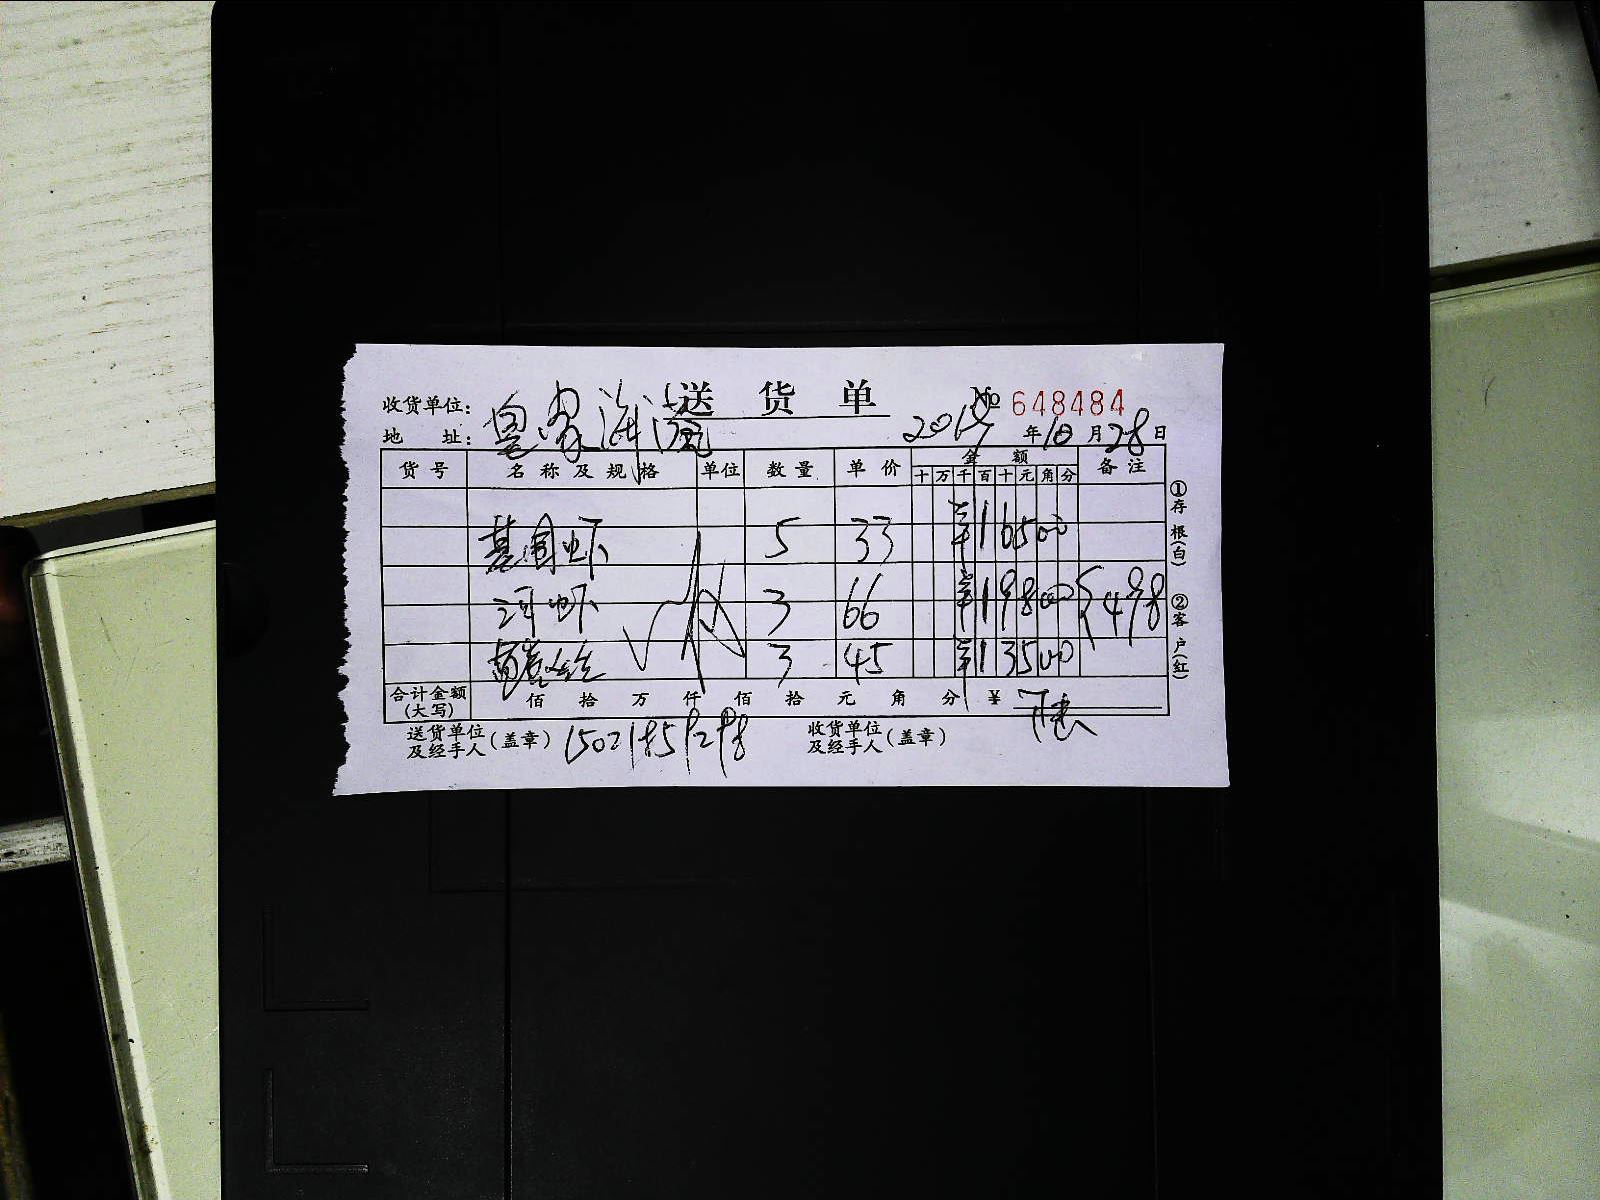 送 货 单
收货单位: 皇家海港
No 648484
地 址: 2019年10月28日
货号 名称及规格 单位 数量 单价 金额 备注
十 万 千 百 十 元 角 分
基围虾 5 33 ¥16500
河虾 3 66 ¥19800 {498
3 45 ¥13500
合计金额(大写) 佰 拾 万 仟 佰 拾 元 角 分 ¥
送货单位及经手人(盖章) 收货单位及经手人(盖章)
①存根(白) ②客户(红)